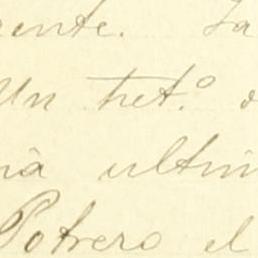 ente. Ya
Un tret.º
ia ultim
Potrero el